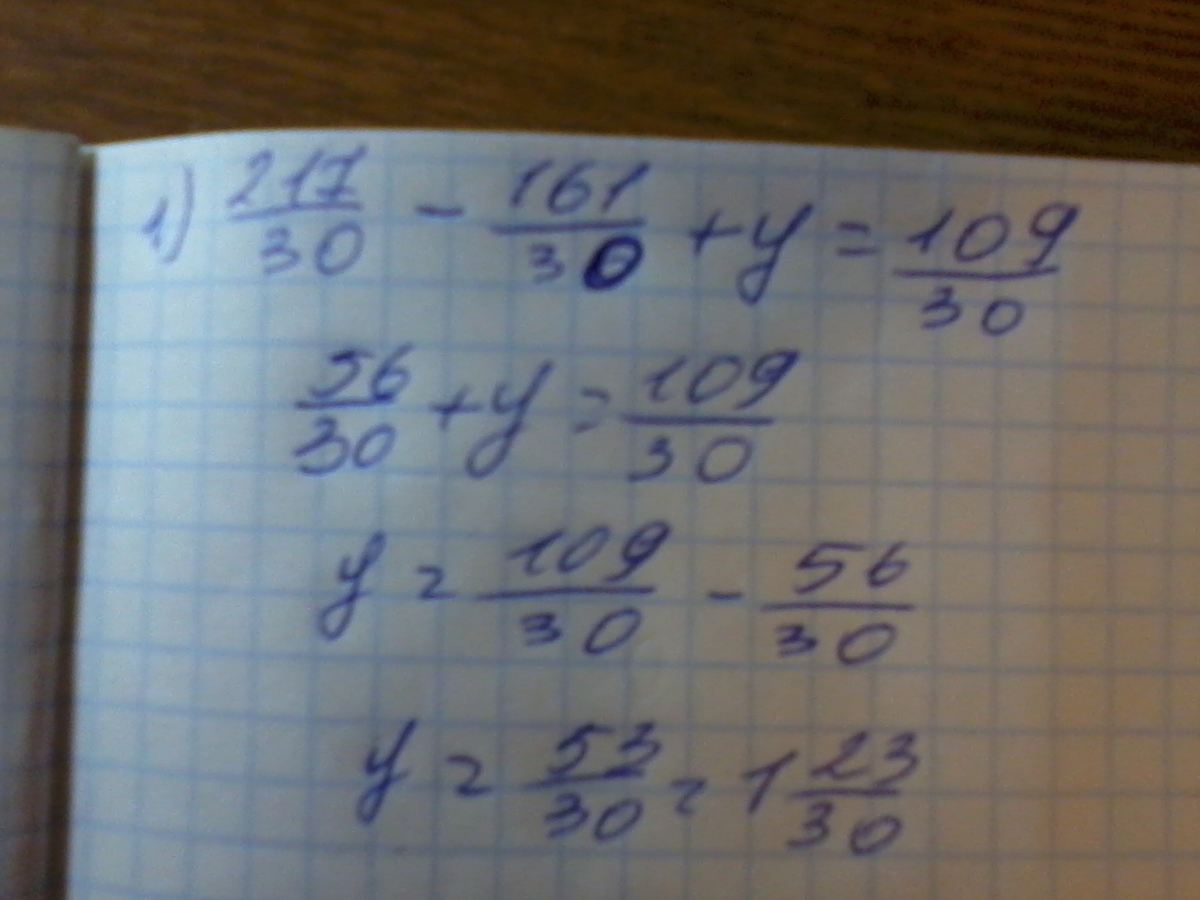 1) 217/30 - 161/30 + y = 109/30
56/30 + y = 109/30
y = 109/30 - 56/30
y = 53/30 = 1 23/30